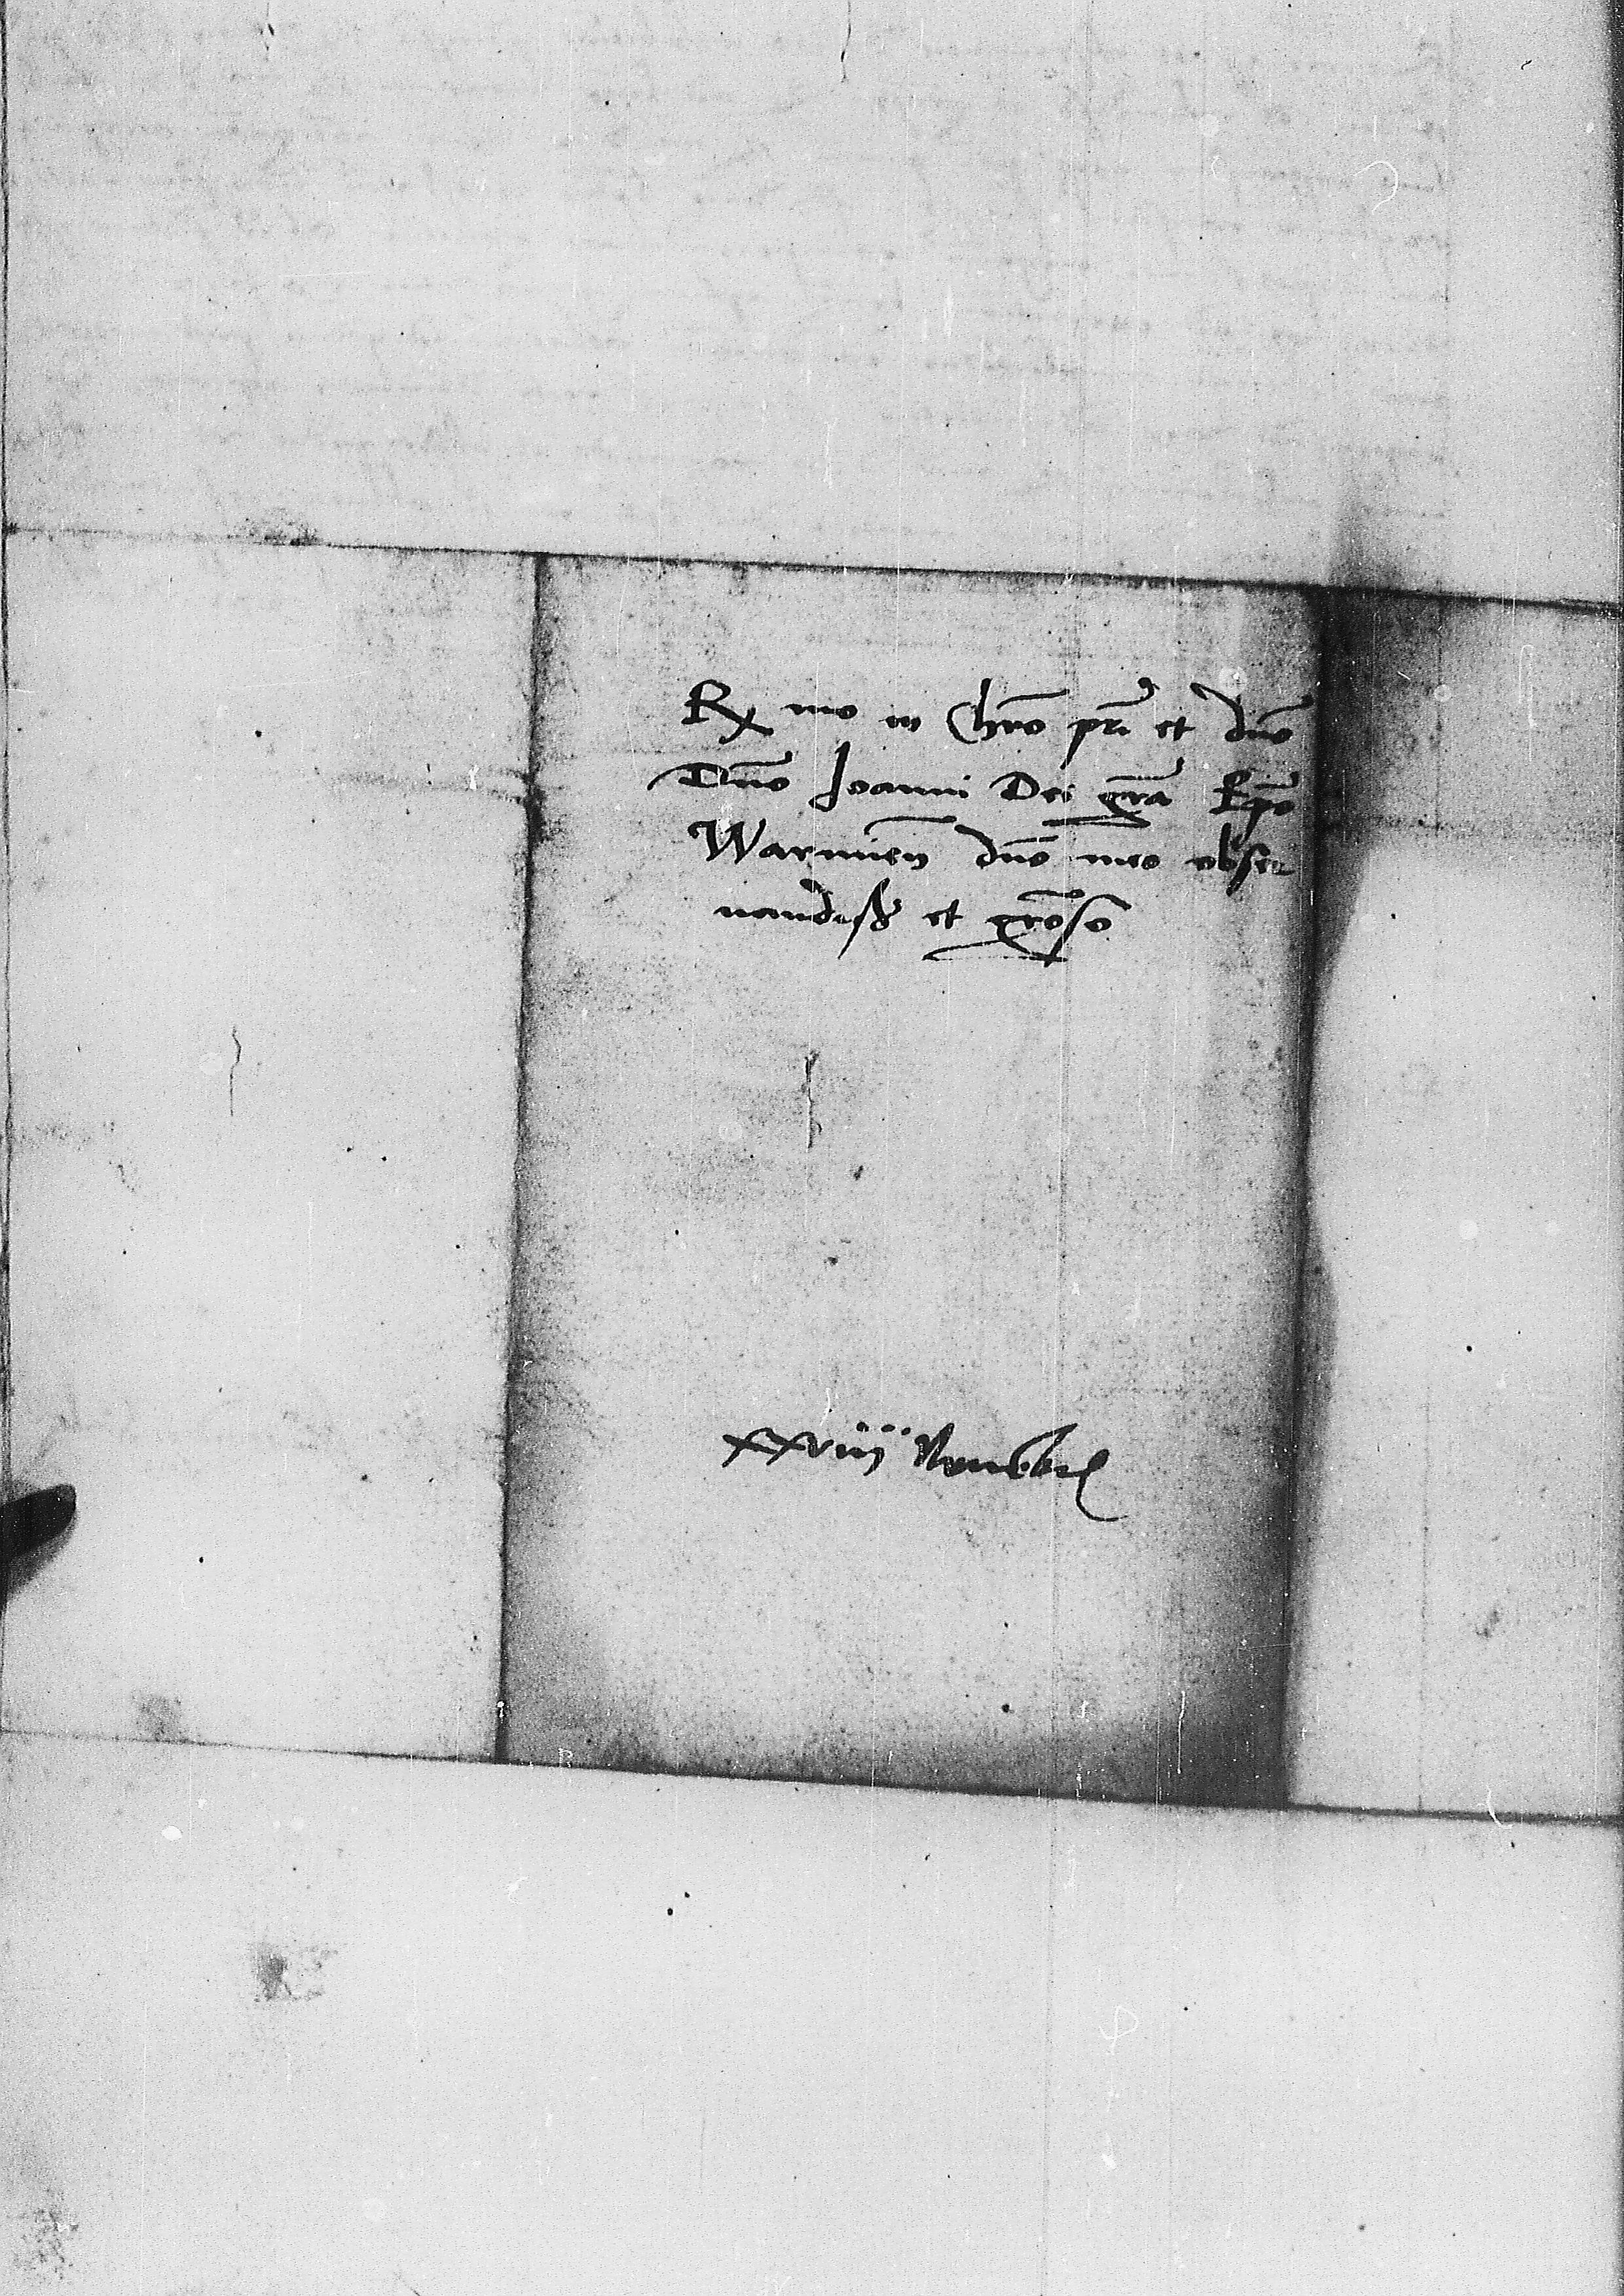 Rx mo in Christo pri et dno
Dno Joanni Dei gra Epo
Warmien dno meo obser
uandiss et groso
xxviij Nouebris